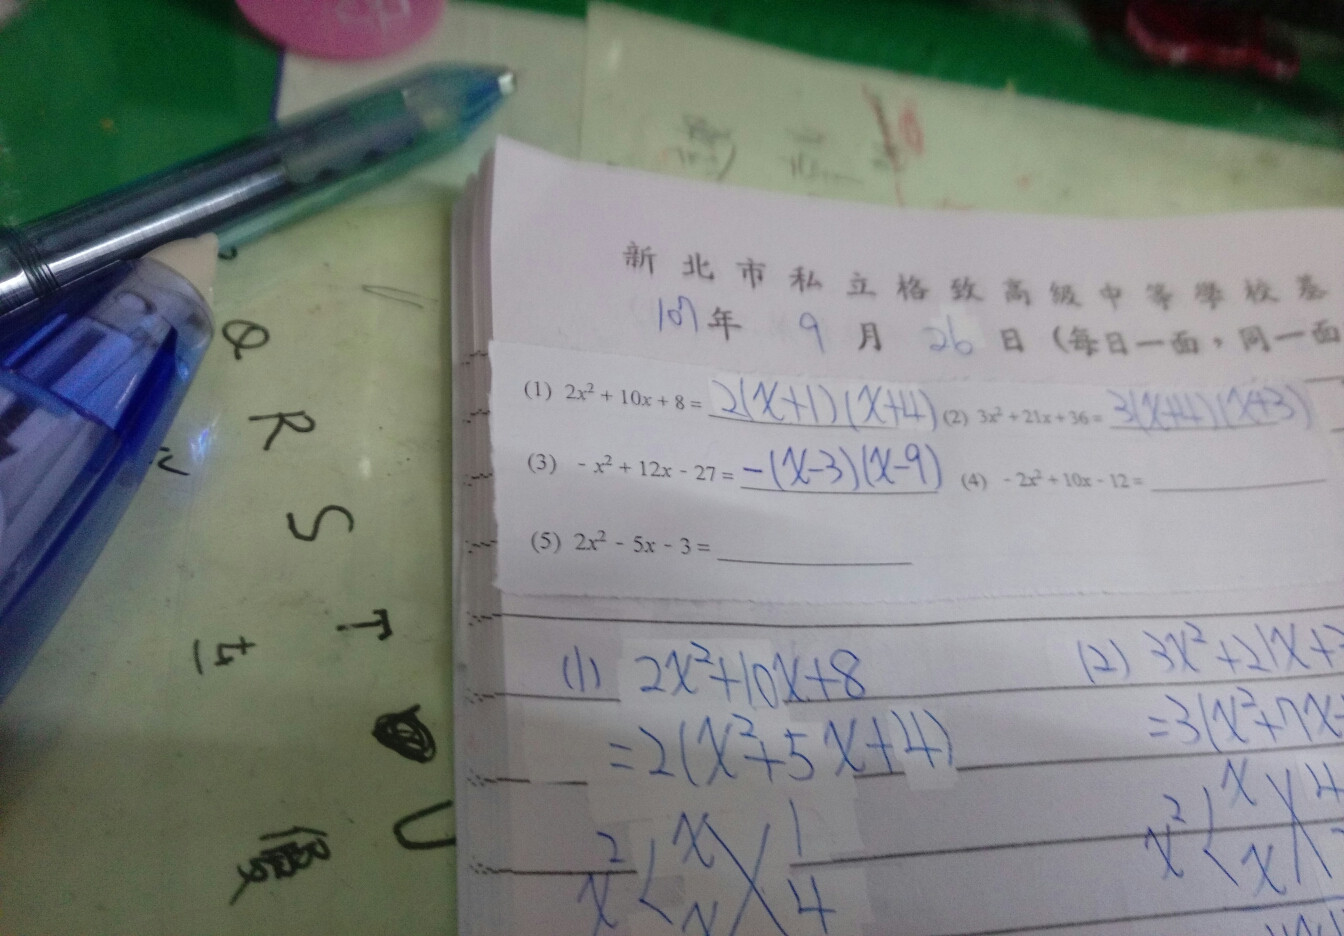 新北市私立格致高級中等學校基
107年 9月 26日(每日一面，同一面
(1) 2x² + 10x + 8 = 2(x+1)(x+4) (2) 3x² + 21x + 36 = 3(x+4)(x+3)
(3) - x² + 12x - 27 = -(x-3)(x-9) (4) - 2x² + 10x - 12 =
(5) 2x² - 5x - 3 =
(1) 2x²+10x+8 (2) 3x²+21x+3
=2(x²+5x+4) =3(x²+7x
x² x 1 x² x 4
x 4 x
Q
R
S
T
U